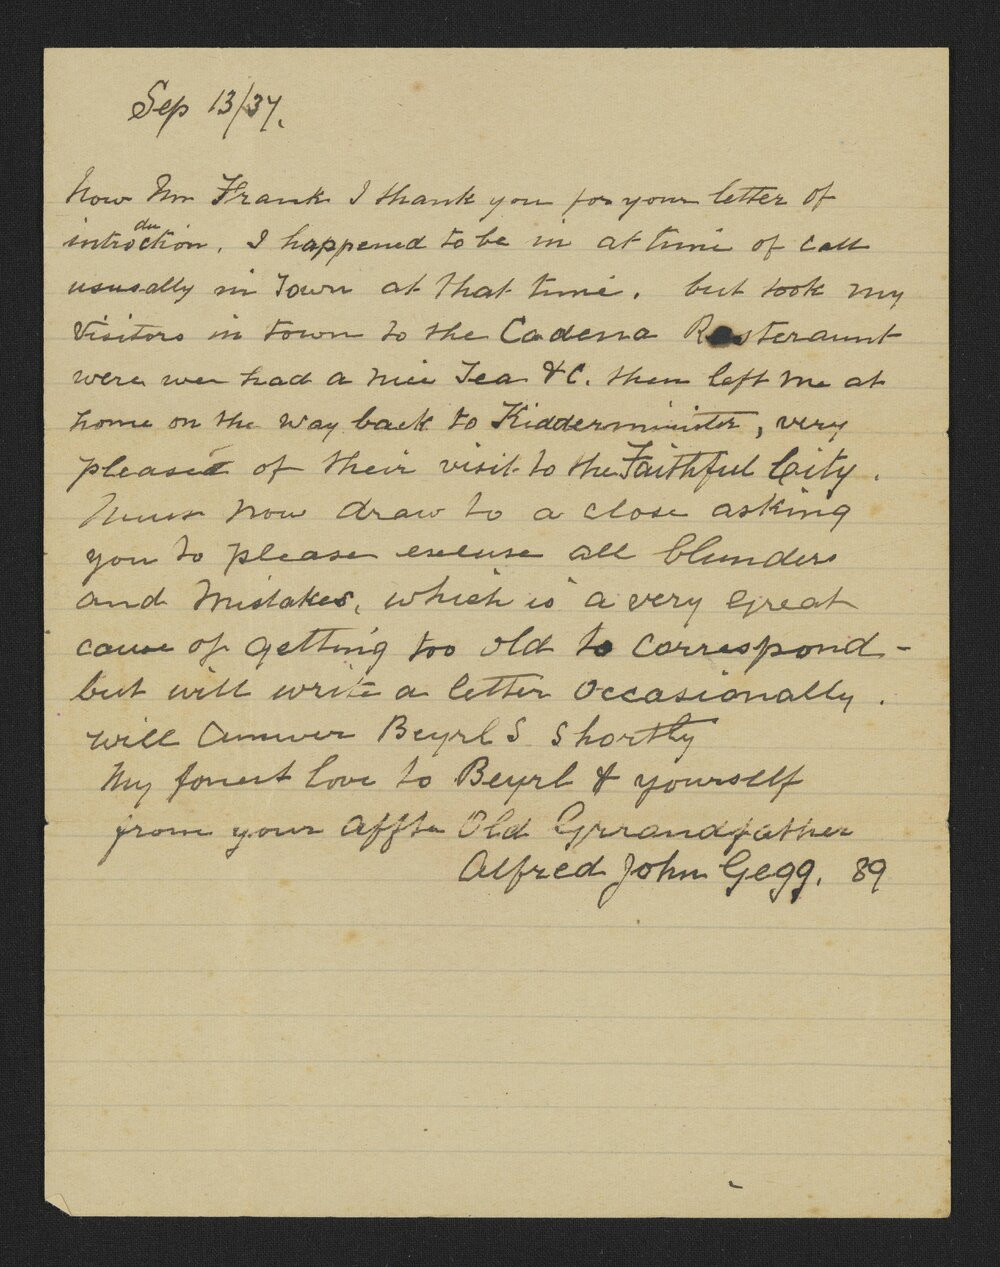 Sep 13/37.
Now Mr Frank I thank you for your letter of
introduction. I happened to be in at time of call
ususally in Town at that time. but took my
Visitors in town to the Cadena Resteraunt
were wer had a nice Tea &C. then left me at
home on the way back to Kidderminster, very
pleased of their visit to the Faithful City.
Must now draw to a close asking
you to please excuse all blunders
and Mistakes, which is a very great
cause of getting too old to correspond -
but will write a letter occasionally.
will Answer Beyrl S shortly
My fonest love to Beyrl & yourself
from your Affte Old Grrandfather
Alfred John Gegg. 89